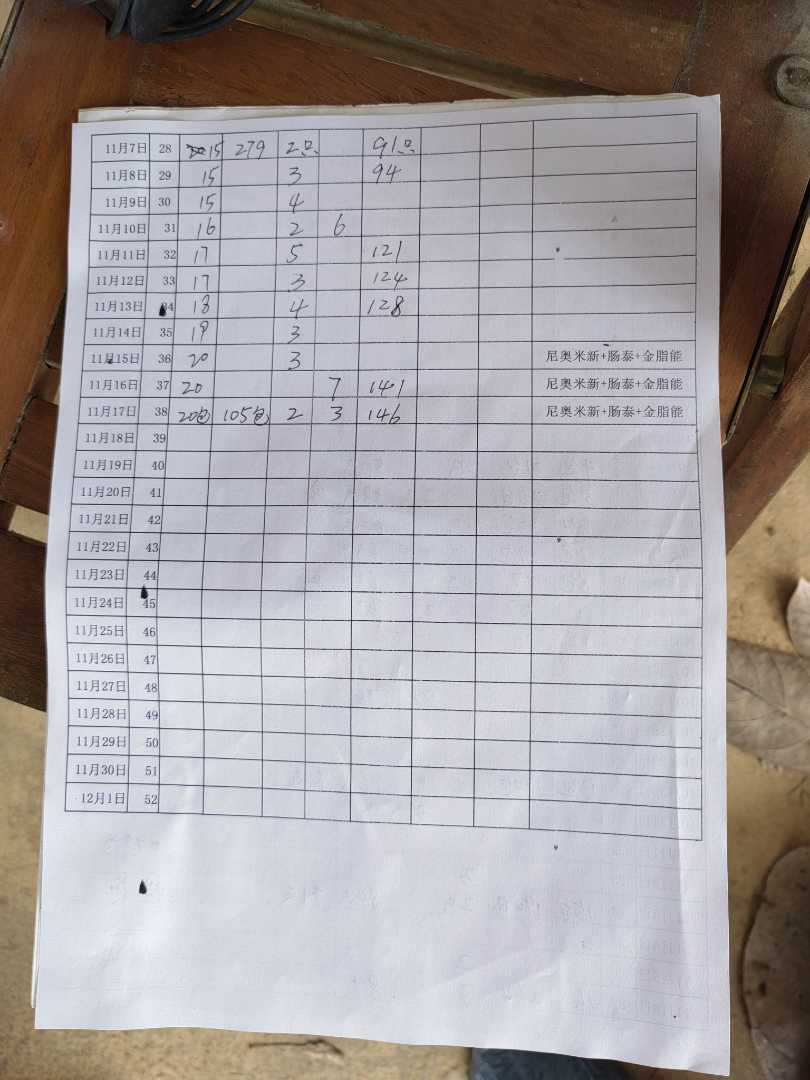 11月7日 28 15 279 2只 91只
11月8日 29 15 3 94
11月9日 30 15 4
11月10日 31 16 2 6
11月11日 32 17 5 121
11月12日 33 17 3 124
11月13日 34 18 4 128
11月14日 35 19 3
11月15日 36 20 3 尼奥米新+肠泰+金脂能
11月16日 37 20 7 141 尼奥米新+肠泰+金脂能
11月17日 38 20包 105包 2 3 146 尼奥米新+肠泰+金脂能
11月18日 39
11月19日 40
11月20日 41
11月21日 42
11月22日 43
11月23日 44
11月24日 45
11月25日 46
11月26日 47
11月27日 48
11月28日 49
11月29日 50
11月30日 51
12月1日 52